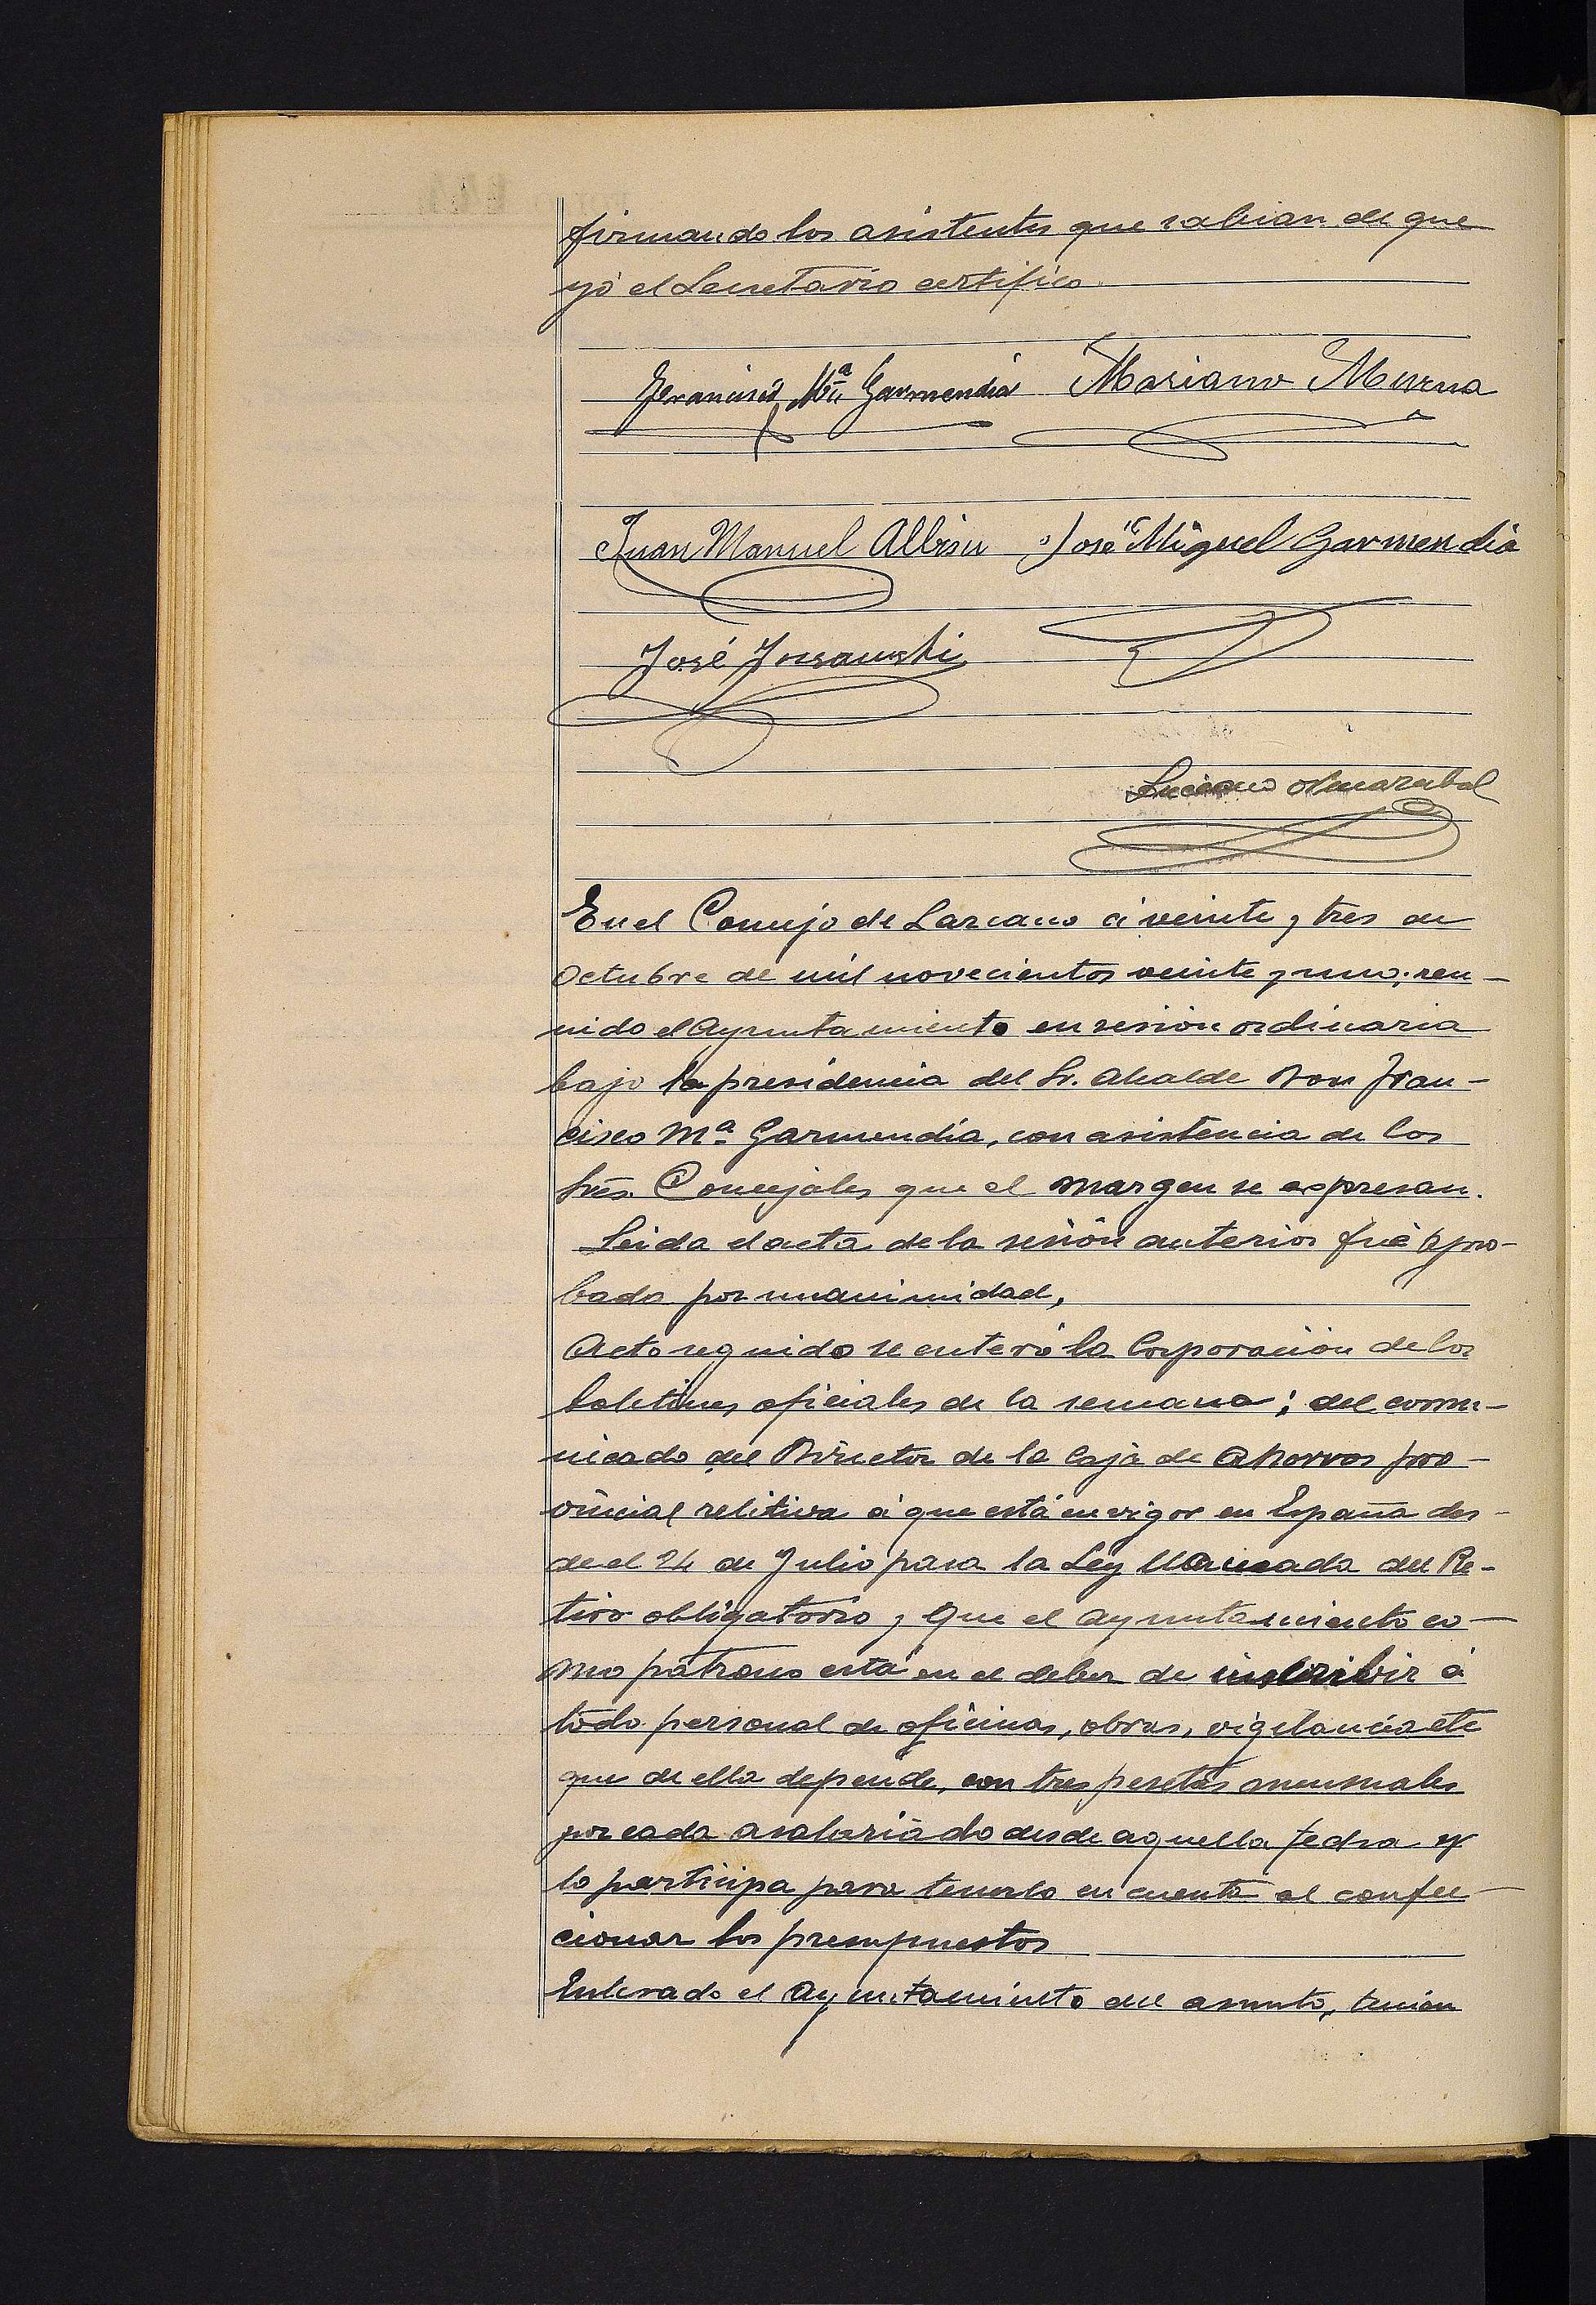 firmando los asistentes que sabian de que
yó el Secretario certifico.
Francisco Mª Garmendia Mariano Murua
Juan Manuel Albisu José Miguel Garmendia
José Insausti
Luciano
En el Concejo de Lazcano á veinte y tres de
Octubre de mil novecientos veinte y uno; reu-
nido el Ayuntamiento en sesión ordinaria
bajo la presidencia del Sr. Alcalde Don Fran-
cisco Mª Garmendia, con asistencia de los
Srēs. Concejales que al margen se expresan.
Leida el acta de la sesión anterior fué apro-
bada por unanimidad,
Acto seguido se enteró la Corporación de los
boletines oficiales de la semana; del comu-
nicado del Director de la Caja de Ahorros pro-
vincial relitiva á que está en vigor en España des-
de el 24 de Julio pasa la Ley llamada del Re-
tiro obligatorio y que el Ayuntamiento co-
mo patrono está en el deber de inscribir á
todo personal de oficinas, obras, vigilancia etc
que de ella depende, con tres pesetas mensuales
por cada asalariado desde aquella fecha y
lo participa para tenerlo en cuenta al confec-
cionar los presupuestos
Enterado el Ayuntamiento del asunto,